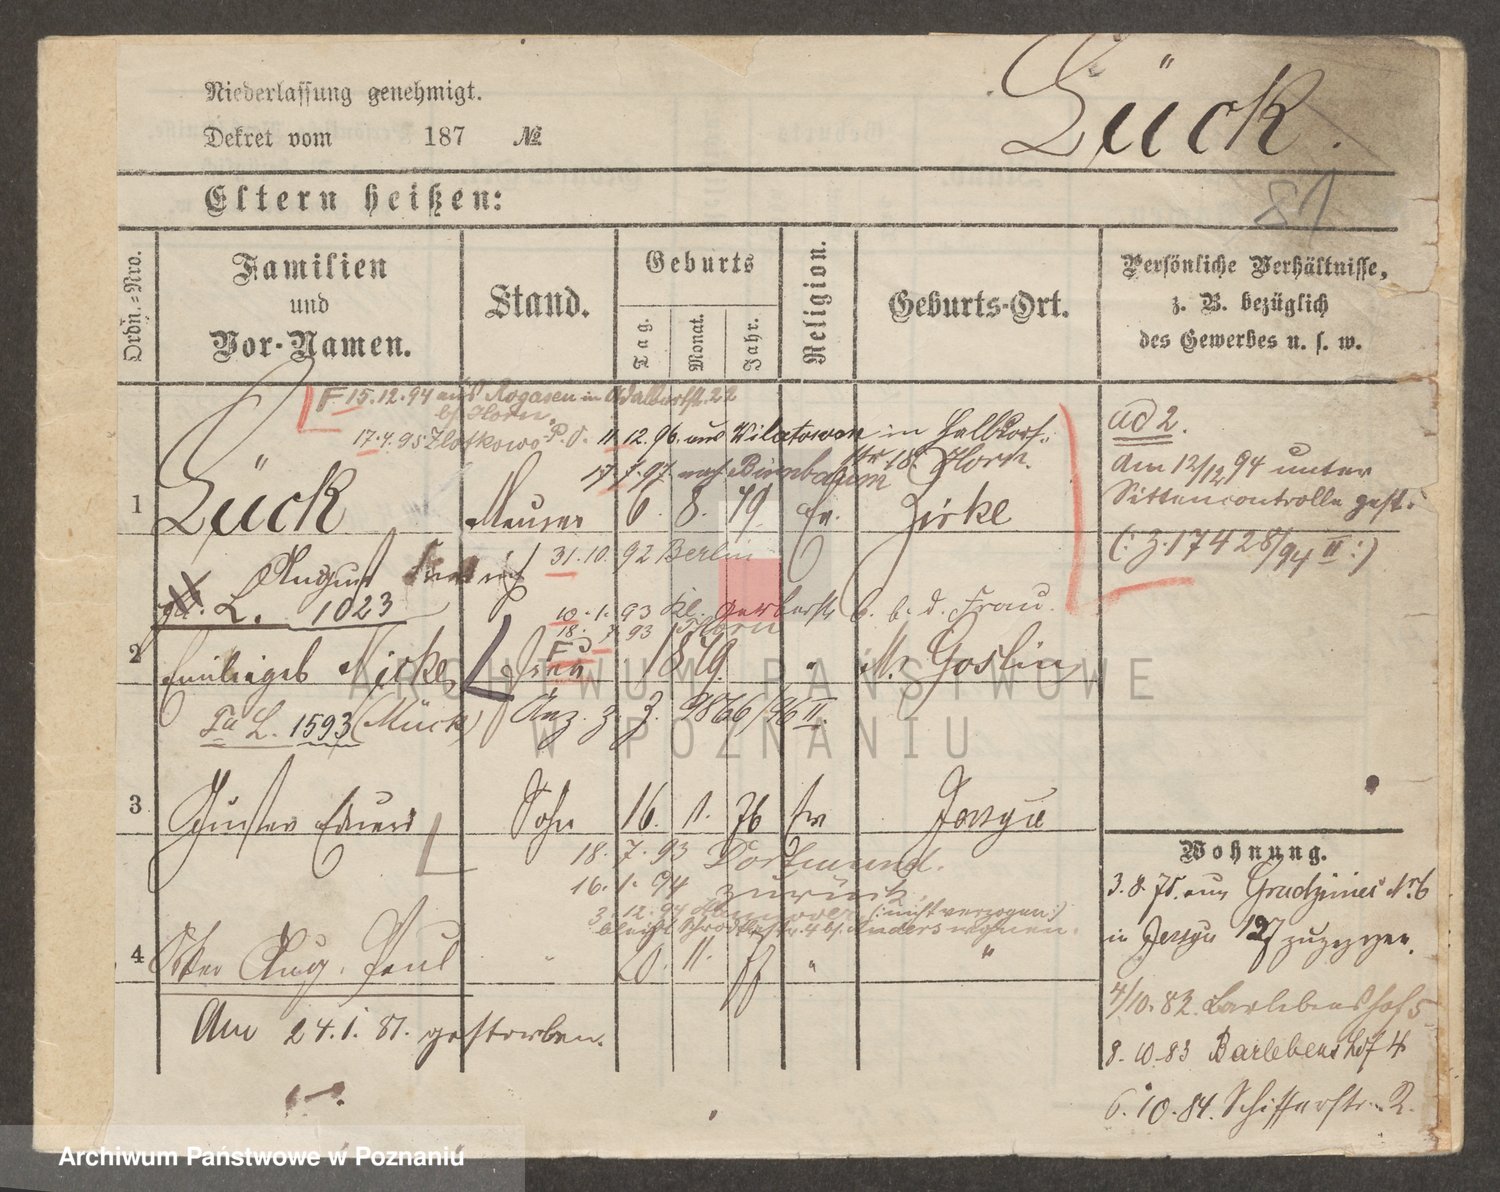 Lück.
Niederlassung genehmigt.
Dekret vom 187 №
81
Eltern heißen:
Ordn.=Nro.
Familien
und
Vor-Namen.
Stand.
Geburts
Tag.
Monat.
Jahr.
Religion.
Geburts-Ort.
Persönliche Verhältnisse,
z. B. bezüglich
des Gewerbes u. s. w.
F. 15.12.94 aus Rogasen in
bs Horn.
17.4.95 Zlotkowo P. O. 11.12.96. aus Wilatowen in Halbdorf-
str 18. Horn.
17.7.97 nach Birnbaum
1 Lück Maurer 6. 8. 49. Ev. Zirke
August
31.10.92 Berlin
L. 1023
10.1.93 Kl. Gerberstr 6. b. d. Frau.
18. 7. 93 Horn
2 geb. Mücke Frau 1849. " M. Goslin
Fa L. 1593 (Mück) Anz. z. Z. 9866/96 II.
3 Gustav Eduard Sohn 16. 1. 76 ev Jersyce
18. 7. 93 Dortmund.
16. 1. 94 zurück.
3.12.94 Hannover (: nicht verzogen :)
bleibt 4 bs Anders wohnen.
4 Oskar Aug. Paul " 20. 11. 77 " "
Am 24.1.81. gestorben.
ad 2.
Am 12/12 94 unter
Sittencontrolle gest.
(: Z. 17428/94 II :)
Wohnung.
3.8.75. aus Gradzinies No 6
in Jersyce 127 zugezogen.
4/10.82. Barlebenshof 5
8.10.83 Barlebenshof 4
6.10.84. Schifferstr. 2.
ARCHIWUM PAŃSTWOWE
W POZNANIU
Archiwum Państwowe w Poznaniu